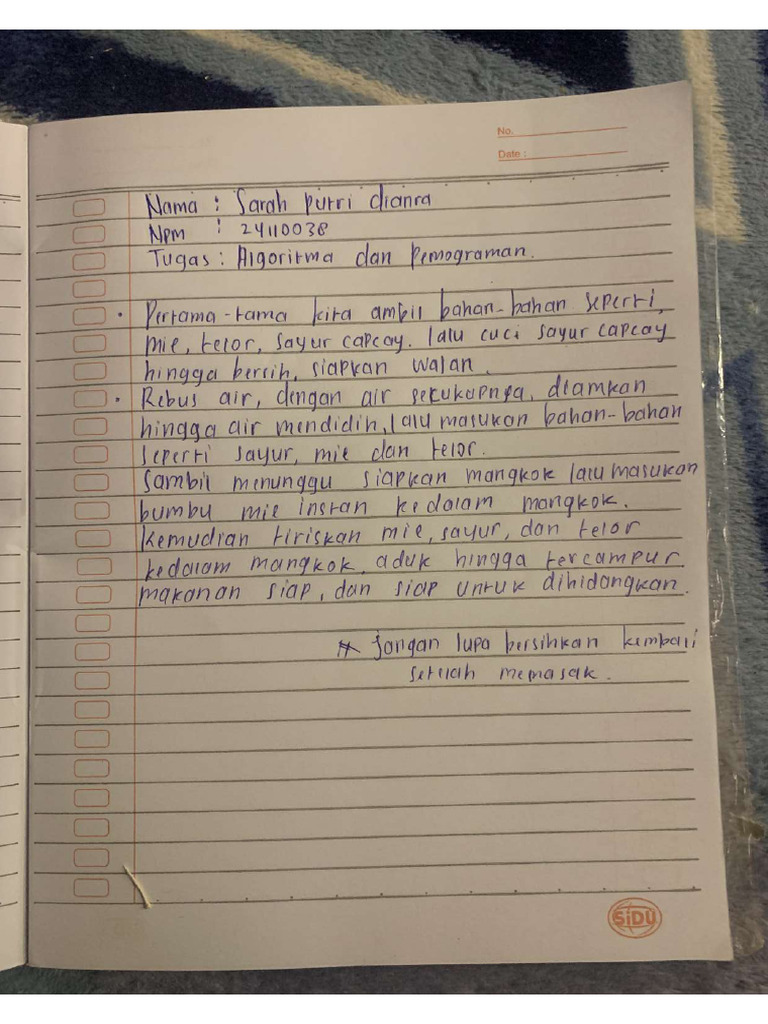 No.
Date :
Nama : Sarah putri dianra
Npm : 24110038
Tugas : Algoritma dan Pemograman.
• Pertama-tama kita ambil bahan-bahan seperti,
mie, telor, sayur capcay. lalu cuci sayur capcay
hingga bersih, siapkan wajan.
• Rebus air, dengan air secukupnya, diamkan
hingga air mendidih, lalu masukan bahan-bahan
seperti sayur, mie dan telor.
Sambil menunggu siapkan mangkok lalu masukan
bumbu mie instan kedalam mangkok.
kemudian tiriskan mie, sayur, dan telor
kedalam mangkok, aduk hingga tercampur.
makanan siap, dan siap untuk dihidangkan.
* jangan lupa bersihkan kembali
setelah memasak.
SiDU